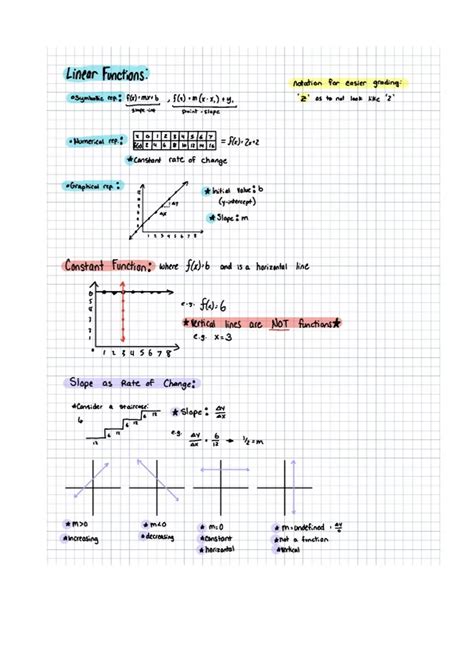 Linear Functions:
notation for easier grading:
"Z" as to not look like "2"
Symbolic rep.: f(x)=mx+b , f(x)=m(x-x₁)+y₁
slope-int point-slope
Numerical rep.:
x 0 1 2 3 4 5 6 7
f(x) 2 4 6 8 10 12 14 16
= f(x)=2x+2
★Constant rate of change
Graphical rep.:
Δy
Δx
1 2 3 4 5 6 7 8
★Initial value: b
(y-intercept)
★Slope: m
Constant Function: where f(x)=b and is a horizontal line
6
5
4
3
2
1
0 1 2 3 4 5 6 7 8
e.g. f(x)=6
★Vertical lines are NOT functions★
e.g. x=3
Slope as Rate of Change:
★Consider a staircase:
6
12 6 12 6 12 6 12
★Slope: Δy/Δx
e.g. Δy/Δx = 6/12 → 1/2 = m
★ m>0
★increasing
★ m<0
★decreasing
★ m=0
★constant
★horizontal
★ m=undefined = Δy/0
★not a function
★Vertical